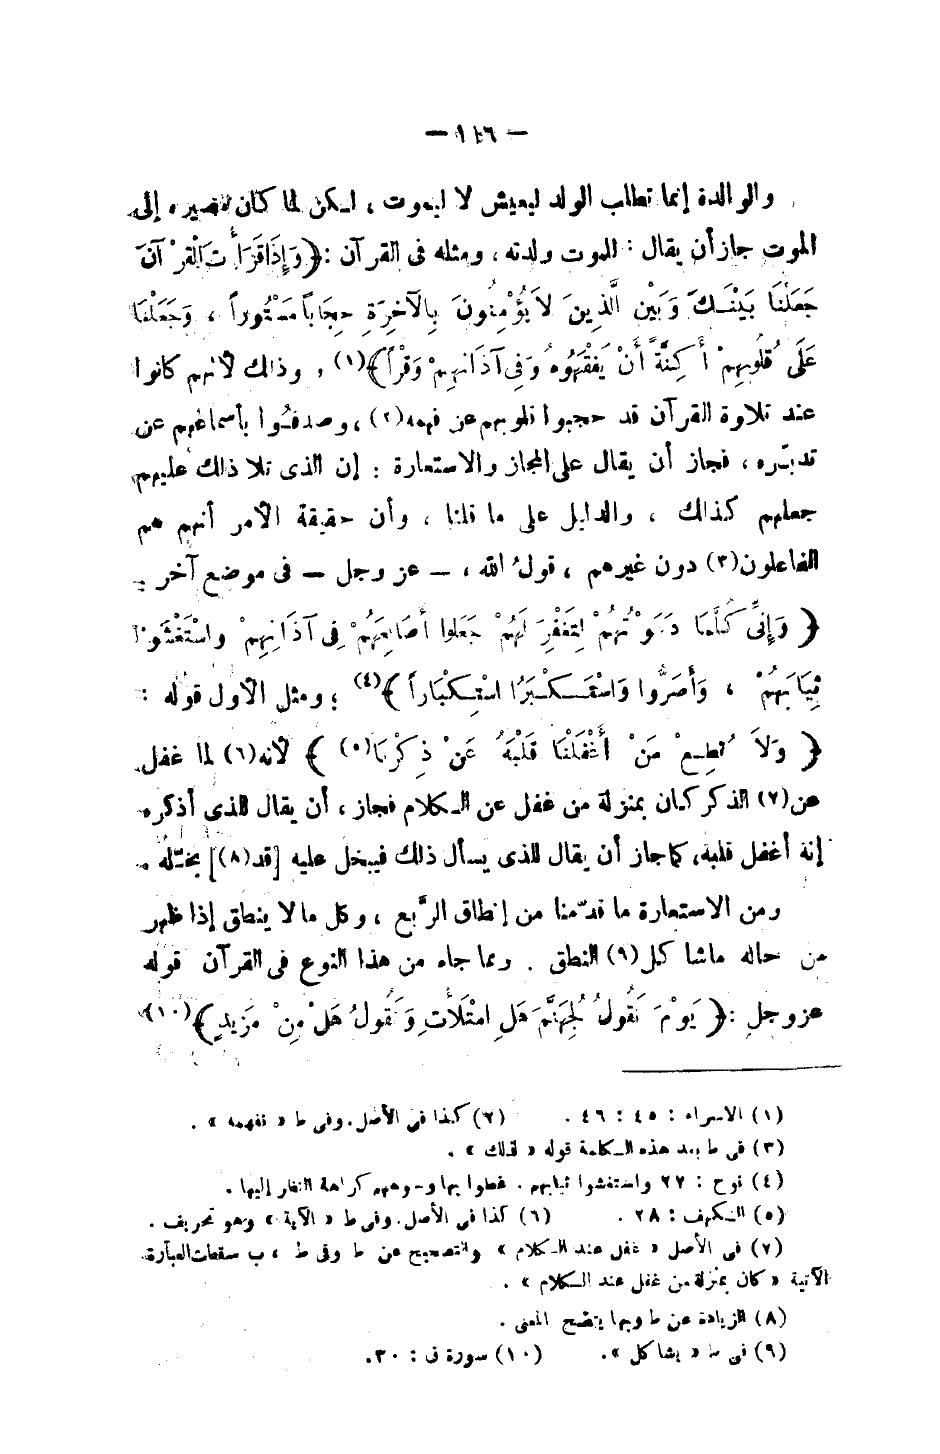 — ١٤٦ —
والوالدة إنما تطلب الولد ليعيش لا ليموت ، لـكن لما كان مصيره إلى
الموت جاز أن يقال : للموت ولدته ، ومثله فى القرآن : ﴿ وَإِذَا قَرَأْتَ الْقُرْآنَ
جَعَلْنَا بَيْنَـكَ وَبَيْنَ الَّذِينَ لاَ يُؤْمِنُونَ بِالْآخِرَةِ حِجَاباً مَسْتُوراً ، وَجَعَلْنَا
عَلَى قُلُوبِهِمْ أَكِنَّةً أَنْ يَفْقَهُوهُ وَفِى آذَانِهِمْ وَقْراً ﴾(١) ، وذلك لأنهم كانوا
عند تلاوة القرآن قد حجبوا قلوبهم عن فهمه(٢) ، وصدفُوا بأسماعهم عن
تدبّره ، فجاز أن يقال على المجاز والاستعارة : إن الذى تلا ذلك عليهم
جعلهم كذلك ، والدليل على ما قلنا ، وأن حقيقة الأمر أنهم هم
الفاعلون(٣) دون غيرهم ، قولُ الله ، — عز وجل — فى موضع آخر :
﴿ وَإِنِّى كُلَّمَا دَعَوْتُهُمْ لِتَغْفِرَ لَهُمْ جَعَلُوا أَصَابِعَهُمْ فِى آذَانِهِمْ واسْتَغْشَوْا
ثِيَابَهُمْ ، وَأَصَرُّوا وَاسْتَـكْـبَرُوا اسْتِـكْبَاراً ﴾(٤) ؛ ومثل الأول قوله :
﴿ وَلاَ تُطِـعْ مَنْ أَغْفَلْنَا قَلْبَهُ عَنْ ذِكْرِنَا(٥) ﴾ لأنه(٦) لما غفل
عن(٧) الذكر كان بمنزلة من غفل عن الـكلام فجاز ، أن يقال للذى أذكره
إنه أغفل قلبه، كما جاز أن يقال للذى يسأل ذلك فيبخل عليه [قد(٨)] بخّله .
ومن الاستعارة ما قدّمنا من إنطاق الرَّبع ، وكل ما لا ينطق إذا ظهر
من حاله ماشا كل(٩) النطق . ومما جاء من هذا النوع فى القرآن قوله
عز وجل : ﴿ يَوْمَ نَقُولُ لِجَهَنَّمَ هَلِ امْتَلَأْتِ وَتَقُولُ هَلْ مِنْ مَزِيدٍ ﴾(١٠)
(١) الاسراء : ٤٥ : ٤٦ . (٢) كذا فى الأصل . وفى ط « تفهمه » .
(٣) فى ط بعد هذه الـكلمة قوله « لذلك » .
(٤) نوح : ٢٧ واستغشوا ثيابهم . غطوا بها وجوههم كراهة النظر إليها .
(٥) الـكهف : ٢٨ . (٦) كذا فى الأصل . وفى ط « الآية » وهو تحريف .
(٧) فى الأصل « غفل عند الـكلام » والتصحيح عن ط وفى ط ، ب سقطت العبارة
الآتية « كان بمنزلة من غفل عند الـكلام » .
(٨) الزيادة عن ط وبها يتضح المعنى .
(٩) فى ط « يشاكل » . (١٠) سورة ق : ٣٠ .